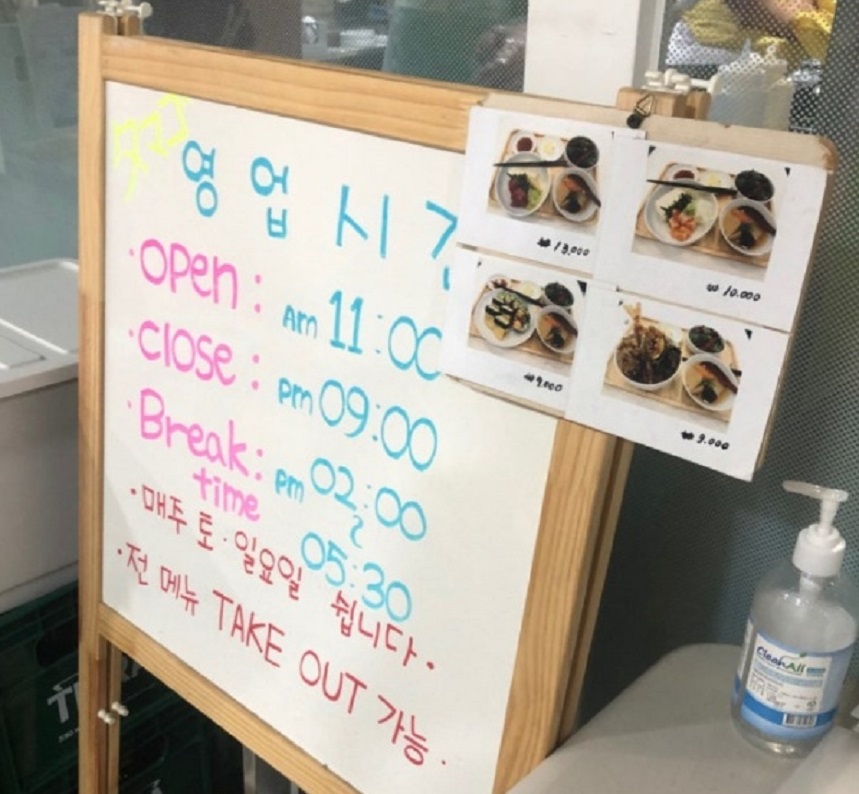 영업시간
· Open : Am 11:00
· Close : pm 09:00
· Break time : pm 02:00 ~ 05:30
· 매주 토·일요일 쉽니다.
· 전 메뉴 TAKE OUT 가능.
₩ 13,000
₩ 10.000
₩ 9,000
₩ 9.000
CleanAll